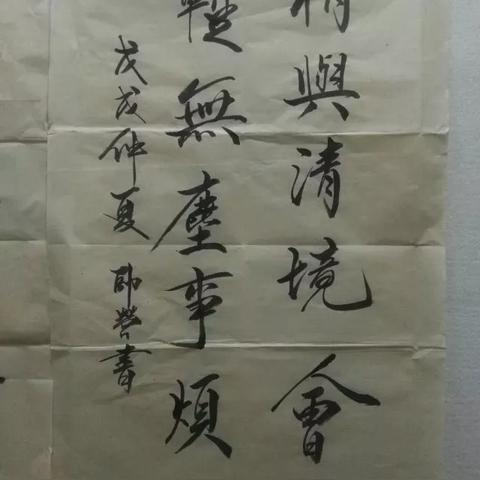 與清境會
無塵事煩
戊戌仲夏 書